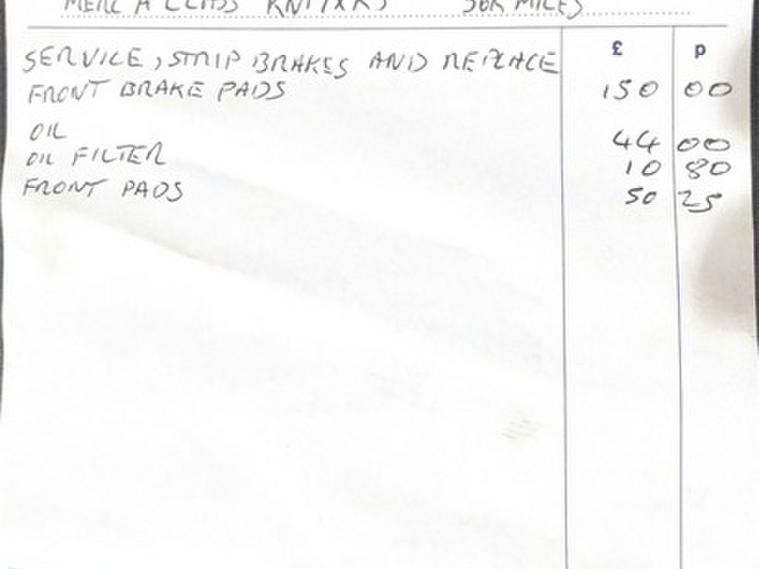 MERC A CLASS 56K MILES
£ p
SERVICE, STRIP BRAKES AND REPLACE
FRONT BRAKE PADS 150 00
OIL 44 00
OIL FILTER 10 80
FRONT PADS 50 25